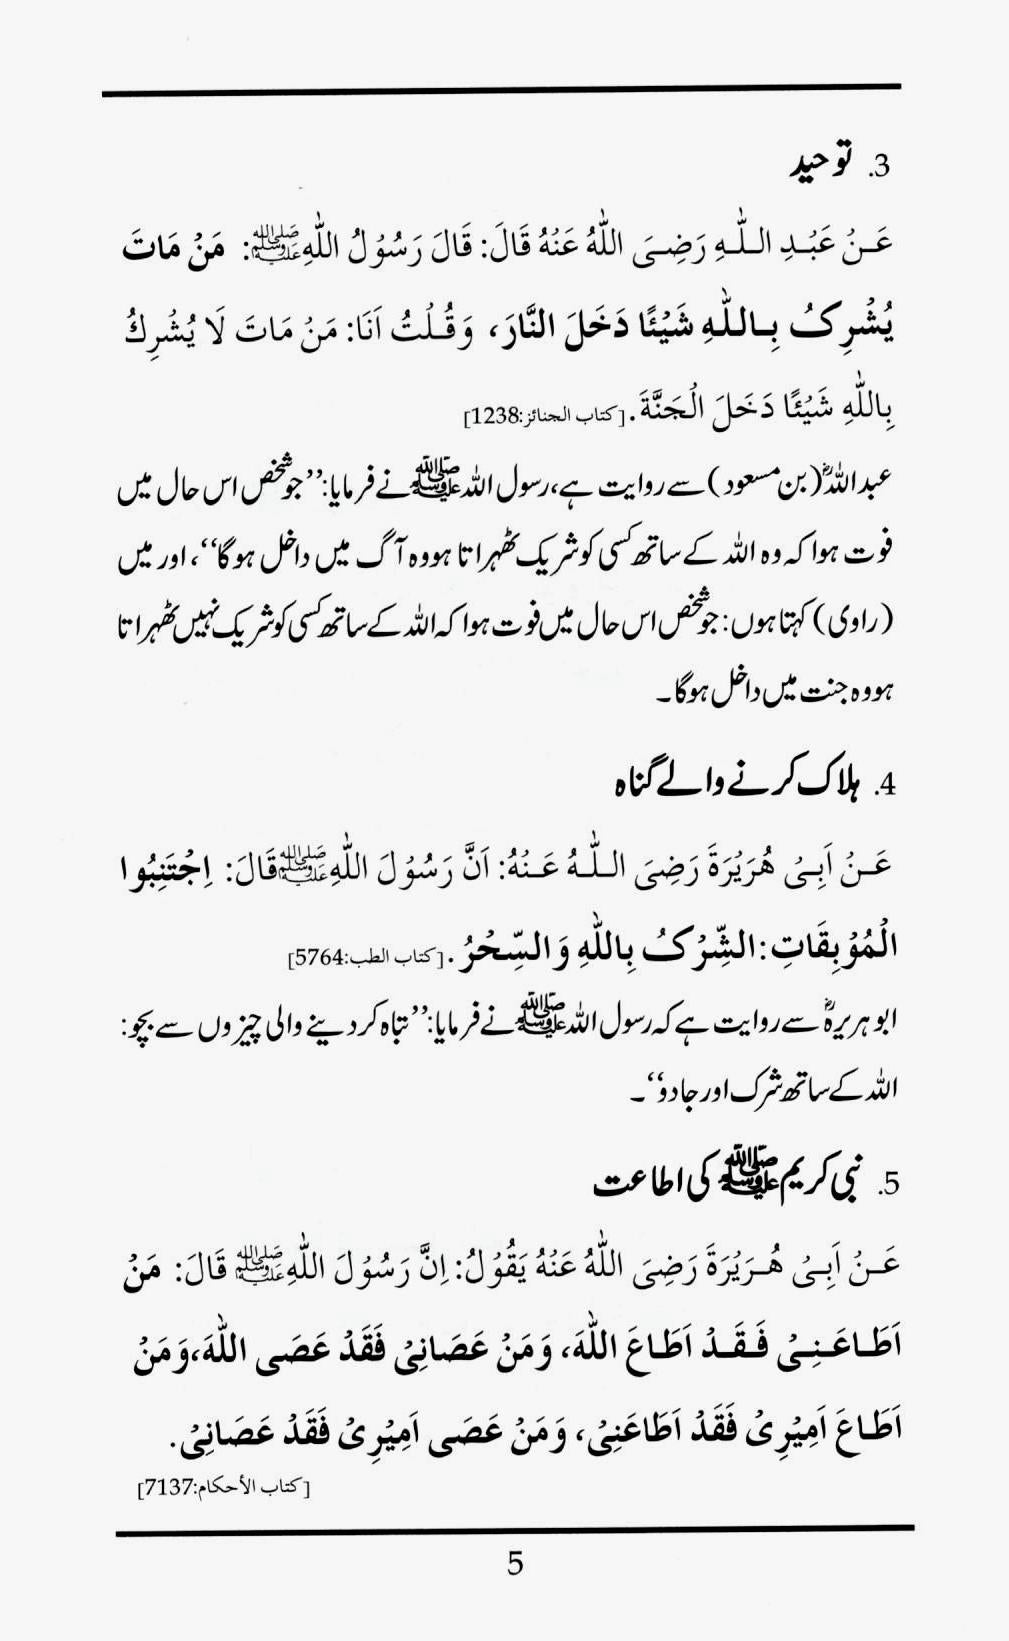 3. توحید
عَـنۡ عَبۡـدِ الـلّٰـهِ رَضِـیَ اللّٰهُ عَنۡهُ قَالَ: قَالَ رَسُوۡلُ اللّٰهِ ﷺ: مَنۡ مَاتَ
یُشۡرِکُ بِـاللّٰهِ شَیۡئًا دَخَلَ النَّارَ، وَقُـلۡتُ اَنَا: مَنۡ مَاتَ لَا یُشۡرِكُ
بِاللّٰهِ شَیۡئًا دَخَلَ الۡجَنَّةَ. [کتاب الجنائز:1238]
عبد اللہؓ (بن مسعود) سے روایت ہے، رسول اللہ ﷺ نے فرمایا: ’’جو شخص اس حال میں
فوت ہوا کہ وہ اللہ کے ساتھ کسی کو شریک ٹھہراتا ہو وہ آگ میں داخل ہوگا‘‘، اور میں
(راوی) کہتا ہوں: جو شخص اس حال میں فوت ہوا کہ اللہ کے ساتھ کسی کو شریک نہیں ٹھہراتا
ہو وہ جنت میں داخل ہوگا۔
4. ہلاک کرنے والے گناہ
عَـنۡ اَبِـیۡ هُرَیۡرَةَ رَضِیَ الـلّٰـهُ عَـنۡهُ: اَنَّ رَسُوۡلَ اللّٰهِ ﷺ قَالَ: اِجۡتَنِبُوا
الۡمُوۡبِقَاتِ: الشِّرۡکُ بِاللّٰهِ وَ السِّحۡرُ. [کتاب الطب:5764]
ابو ہریرہؓ سے روایت ہے کہ رسول اللہ ﷺ نے فرمایا: ’’تباہ کر دینے والی چیزوں سے بچو:
اللہ کے ساتھ شرک اور جادو‘‘۔
5. نبی کریم ﷺ کی اطاعت
عَـنۡ اَبِـیۡ هُـرَیۡرَةَ رَضِیَ اللّٰهُ عَنۡهُ یَقُوۡلُ: اِنَّ رَسُوۡلَ اللّٰهِ ﷺ قَالَ: مَنۡ
اَطَـاعَـنِـیۡ فَـقَـدۡ اَطَـاعَ اللّٰهَ، وَمَنۡ عَصَانِیۡ فَقَدۡ عَصَی اللّٰهَ، وَمَنۡ
اَطَـاعَ اَمِیۡرِیۡ فَقَدۡ اَطَاعَنِیۡ، وَمَنۡ عَصَی اَمِیۡرِیۡ فَقَدۡ عَصَانِیۡ.
[کتاب الأحکام:7137]
5